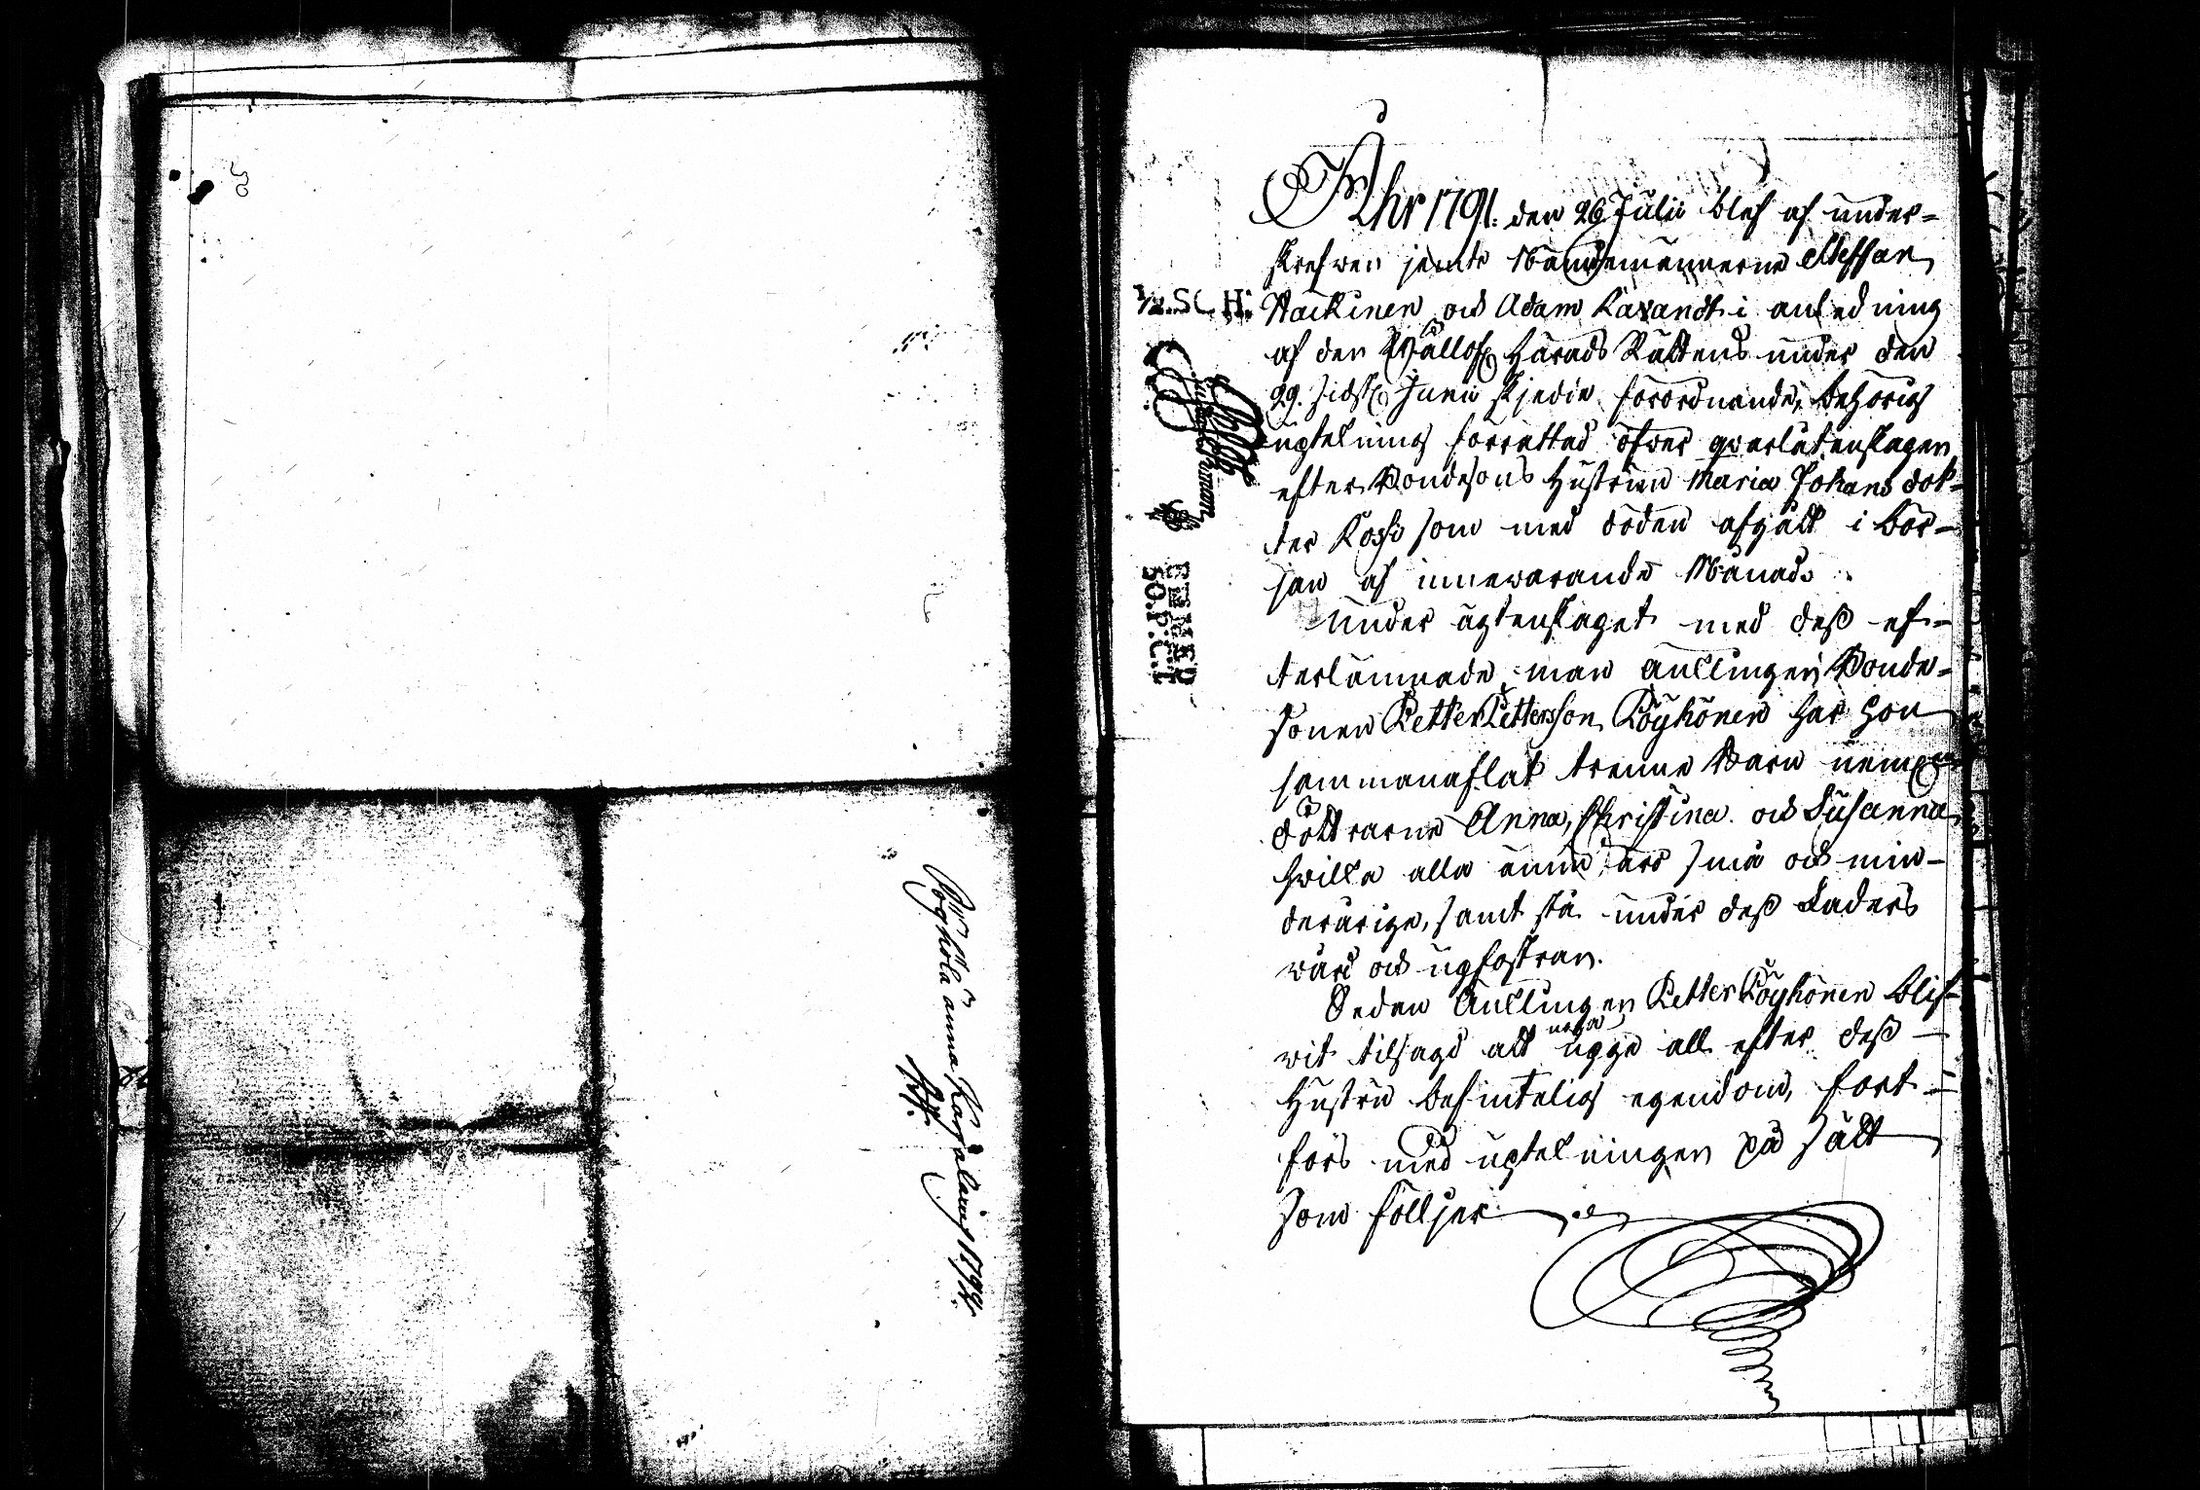 Pöyhölä ānna Kargalaing 1792
Åhr 1791. den 26 Julii blef af under-
skrefwen jemte Nämdemännerne Steffan
Hackinen och Adam Kavandt i anledning
af den Wällofl Härads Rättens under den
29. sidstl Junii skjedde förordnande, behörig
uptekning förrättad öfwer qwarlåtenskapen
efter Bondesons Hustrun Maria Johans dot-
ter Kossi som med döden afgått i bör-
jan af innewarande Månad.
Under ägtenskapet med dess ef-
terlämnade man Änklingen Bonde-
sonen Petter Pettersson Pöyhönen har hon
sammanaflat trenne Barn neml
döttrarne Anna, Christina och Susanna
hwilka alla ännu äro små och min-
derårige, samt stå under dess Faders
wård och upfostran.
Sedan Änklingen Petter Pöyhönen blif-
wit tilsagd att upge all efter dess
Hustru befintelig egendom, fort-
fors med uptekningen på sätt
som följer
1/2. SC. H.
50.P:C:T